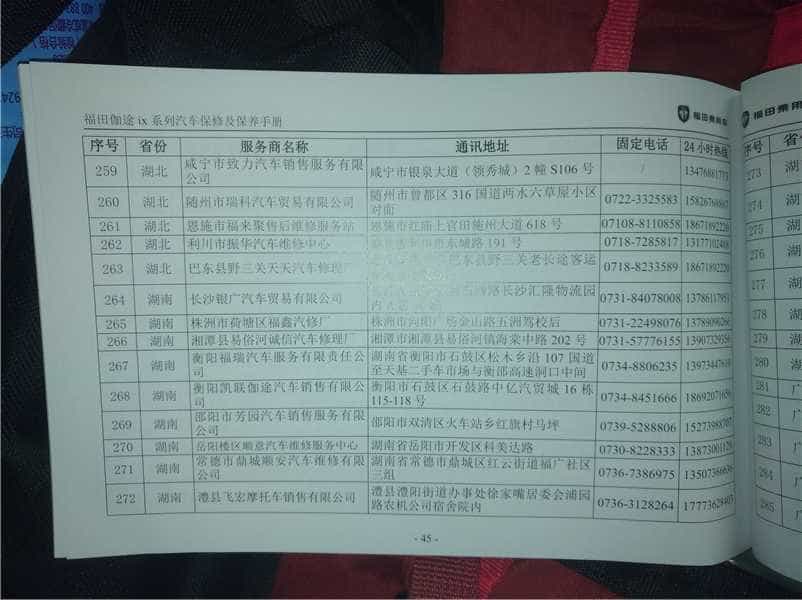 福田伽途 ix 系列汽车保修及保养手册
福田乘用车
序号 省份 服务商名称 通讯地址 固定电话 24 小时热线
259 湖北 咸宁市致力汽车销售服务有限公司 咸宁市银泉大道（领秀城）2 幢 S106 号 / 134768817
260 湖北 随州市瑞科汽车贸易有限公司 随州市曾都区 316 国道两水六草屋小区对面 0722-3325583
261 湖北 恩施市福来聚售后维修服务站 恩施市红庙上官田施州大道 618 号 07108-8110858 18671892220
262 湖北 利川市振华汽车维修中心 东城路 191 号 0718-7285817
263 湖北 巴东县野三关天天汽车修理厂 巴东县野三关老长途客运 0718-8233589
264 湖南 长沙银广汽车贸易有限公司 路长沙汇隆物流园 0731-84078008
265 湖南 株洲市荷塘区福鑫汽修厂 株洲市向阳广场金山路五洲驾校后 0731-22498076
266 湖南 湘潭县易俗河诚信汽车修理厂 湘潭县易俗河镇海棠中路 202 号 0731-57776155
267 湖南 衡阳福瑞汽车服务有限责任公司 湖南省衡阳市石鼓区松木乡沿 107 国道至天基二手车市场与衡邵高速洞口中间 0734-8806235
268 湖南 衡阳凯联伽途汽车销售有限公司 衡阳市石鼓区石鼓路中亿汽贸城 16 栋 115-118 号 0734-8451666
269 湖南 邵阳市芳园汽车销售服务有限公司 邵阳市双清区火车站乡红旗村马坪 0739-5288806
270 湖南 岳阳楼区顺意汽车维修服务中心 湖南省岳阳市开发区科美达路 0730-8228333
271 湖南 常德市鼎城顺安汽车维修有限公司 湖南省常德市鼎城区红云街道福广社区三组 0736-7386975
272 湖南 澧县飞宏摩托车销售有限公司 澧县澧阳街道办事处徐家嘴居委会浦园路农机公司宿舍院内 0736-3128264
- 45 -
福田乘用
序号
273
274
275
276
277
278
279
280
281
282
283
284
285